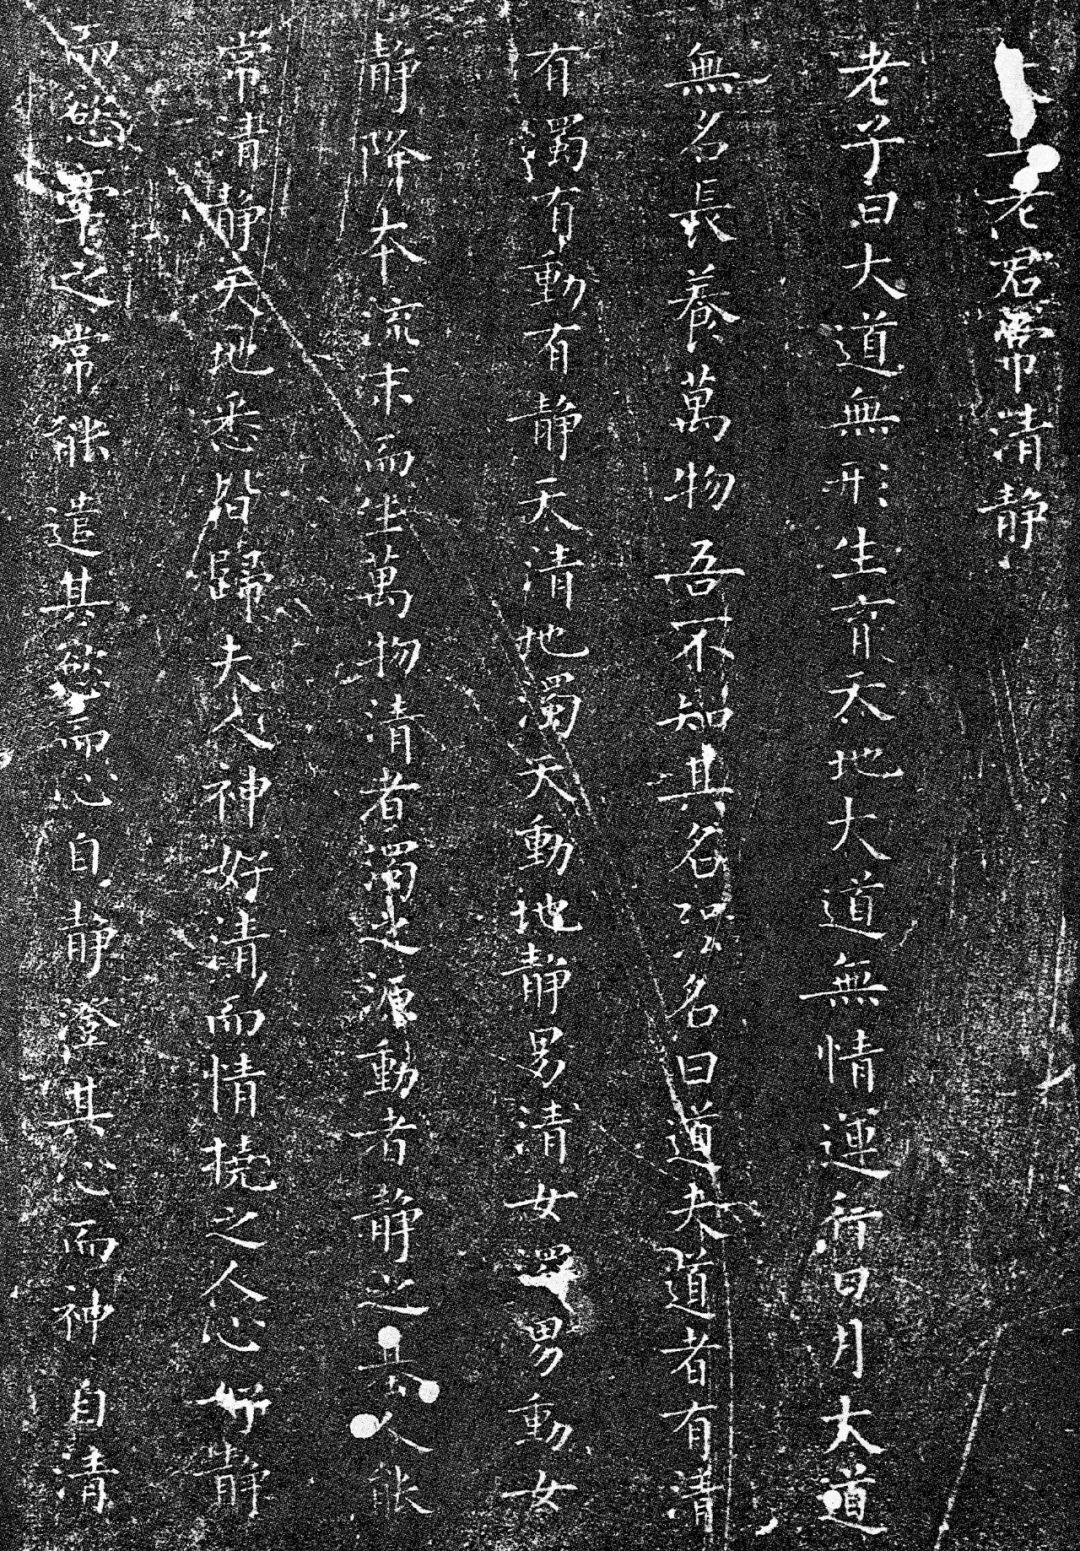 太上老君常清靜
老子曰大道無形生育天地大道無情運行日月大道
無名長養萬物吾不知其名強名曰道夫道者有清
有濁有動有靜天清地濁天動地靜男清女濁男動女
靜降本流末而生萬物清者濁之源動者靜之基人能
常清靜天地悉皆歸夫人神好清而情撓之人心好靜
而慾牽之常能遣其慾而心自靜澄其心而神自清